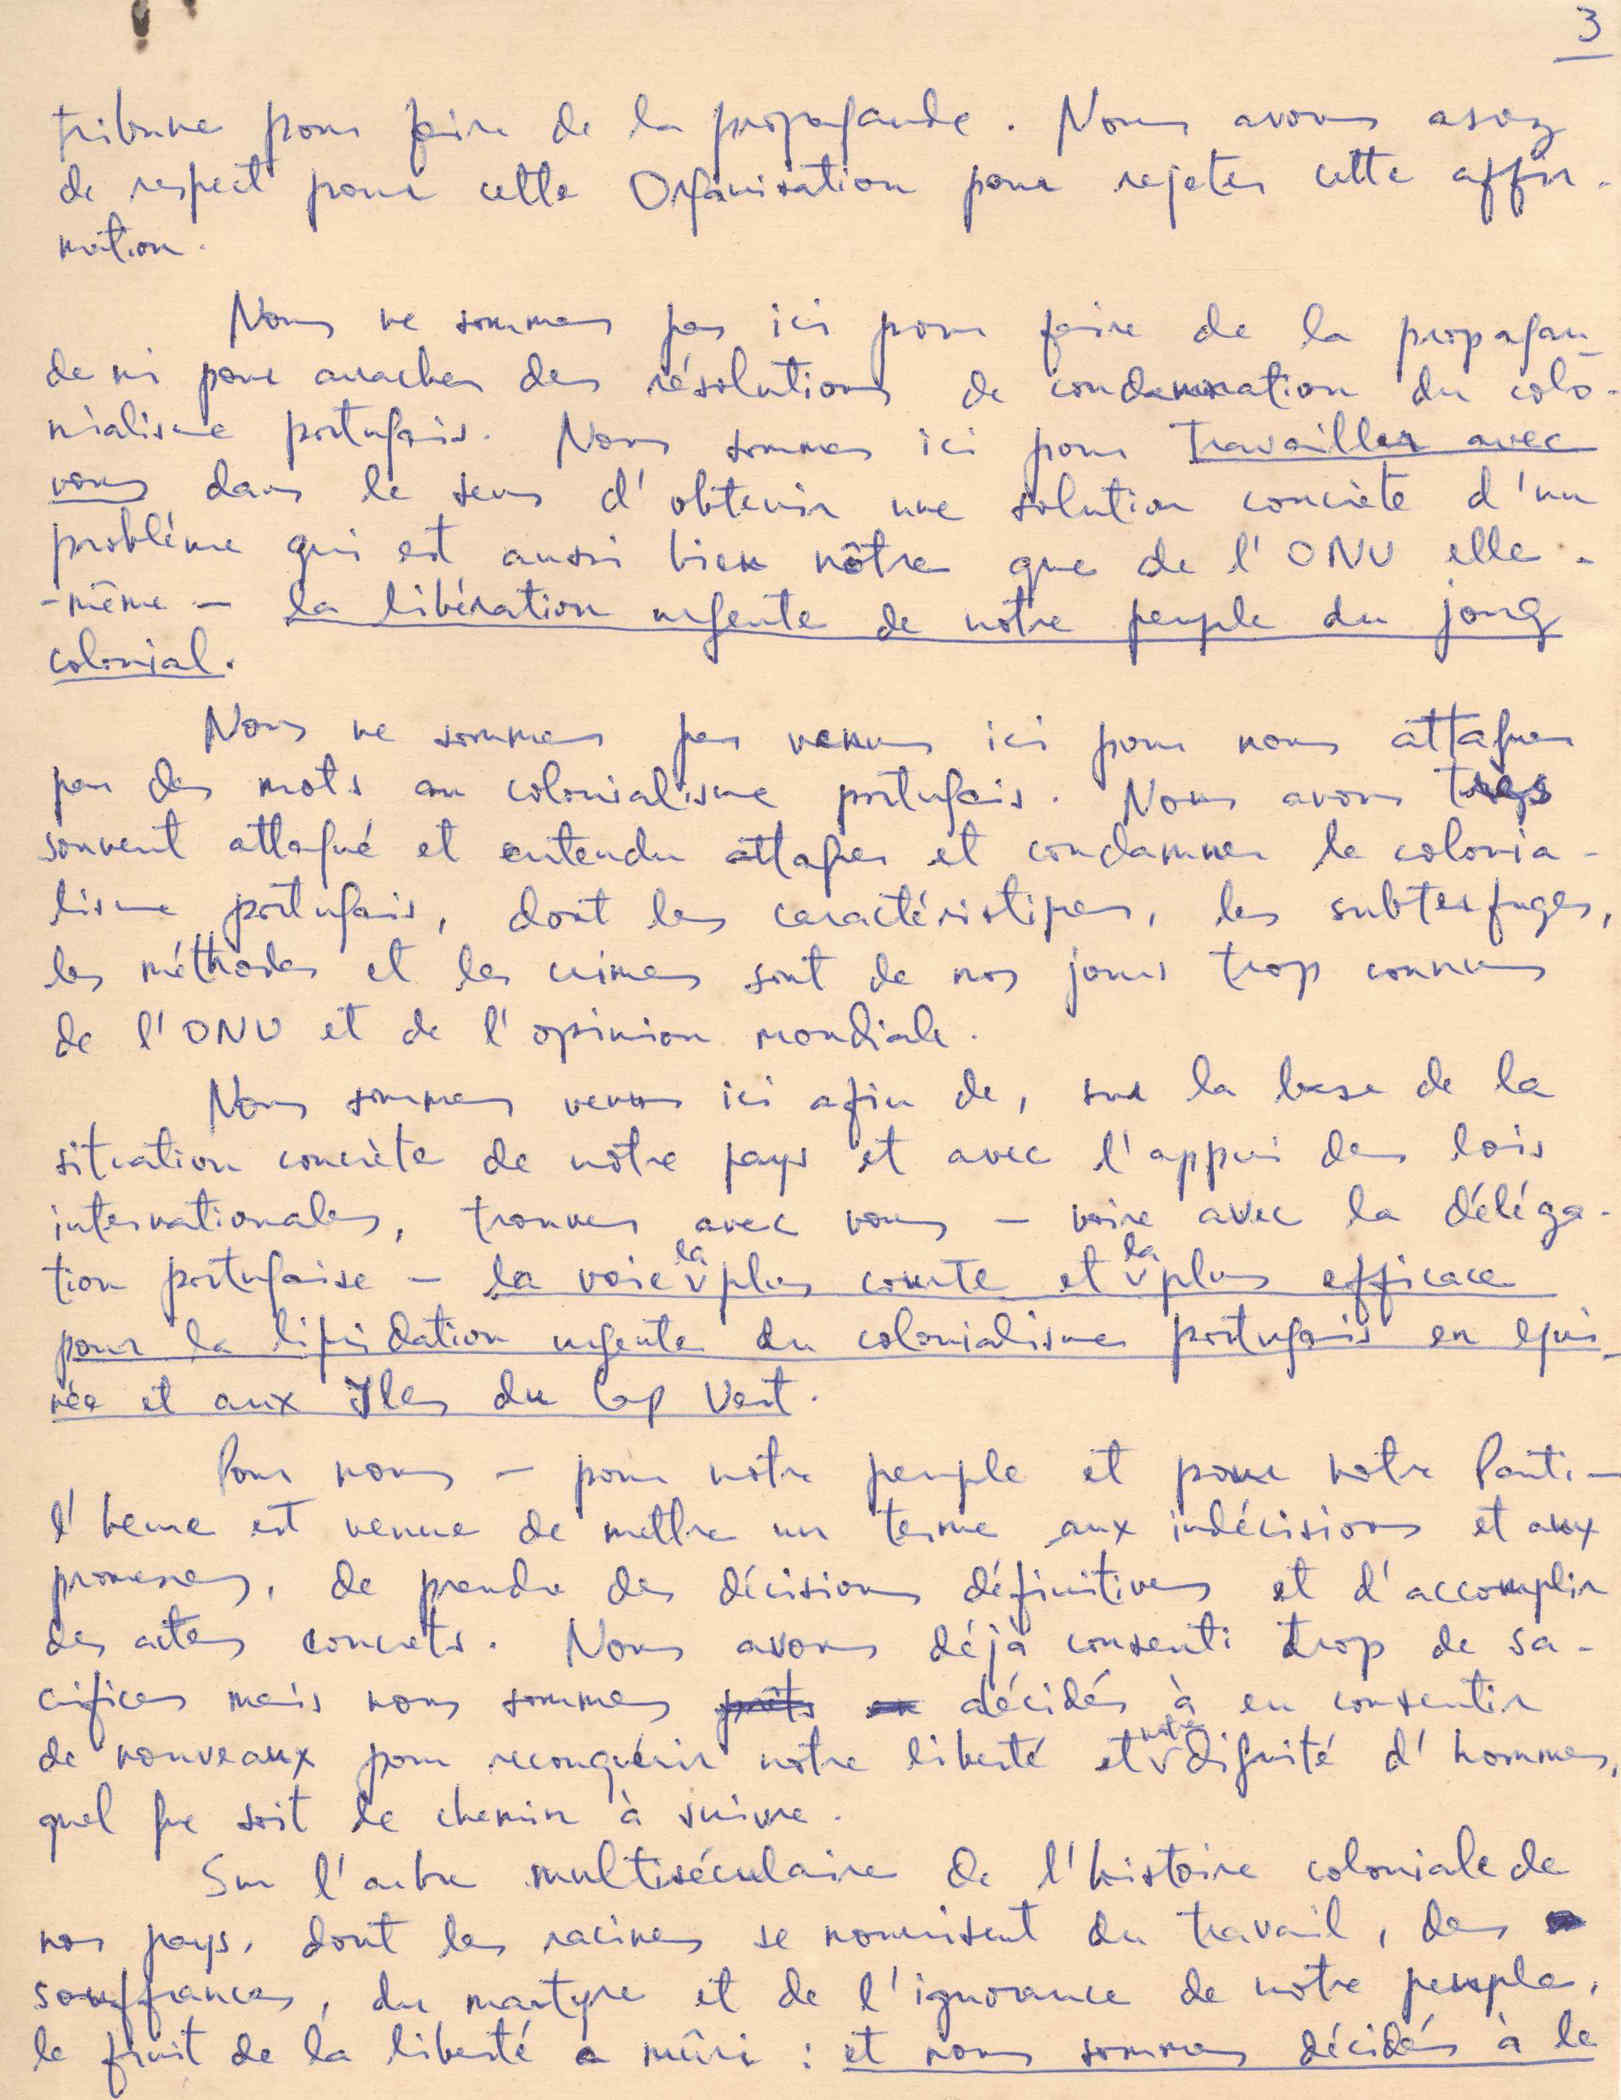 3
tribune pour faire de la propagande. Nous avons assez
de respect pour cette Organisation pour rejeter cette affir-
mation.
Nous ne sommes pas ici pour faire de la propagan-
de ni pour arracher des résolutions de condamnation du colo-
nialisme portugais. Nous sommes ici pour travailler avec
vous dans le sens d'obtenir une solution concrète d'un
problème qui est aussi bien nôtre que de l'ONU elle-
-même — la libération urgente de notre peuple du joug
colonial.
Nous ne sommes pas venus ici pour nous attaquer
par des mots au colonialisme portugais. Nous avons très
souvent attaqué et entendu attaquer et condamner le colonia-
lisme portugais, dont les caractéristiques, les subterfuges,
les méthodes et les crimes sont de nos jours trop connus
de l'ONU et de l'opinion mondiale.
Nous sommes venus ici afin de, sur la base de la
situation concrète de notre pays et avec l'appui des lois
internationales, trouver avec vous — voire avec la déléga-
tion portugaise — la voie la plus courte et la plus efficace
pour la liquidation urgente du colonialisme portugais en Gui-
née et aux Iles du Cap Vert.
Pour nous — pour notre peuple et pour notre Parti —
l'heure est venue de mettre un terme aux indécisions et aux
promesses, de prendre des décisions définitives et d'accomplir
des actes concrets. Nous avons déjà consenti trop de sa-
crifices mais nous sommes prêts décidés à en consentir
de nouveaux pour reconquérir notre liberté et notre dignité d'hommes,
quel que soit le chemin à suivre.
Sur l'arbre multiséculaire de l'histoire coloniale de
nos pays, dont les racines se nourrisent du travail, des
souffrances, du martyre et de l'ignorance de notre peuple,
le fruit de la liberté a mûri : et nous sommes décidés à le